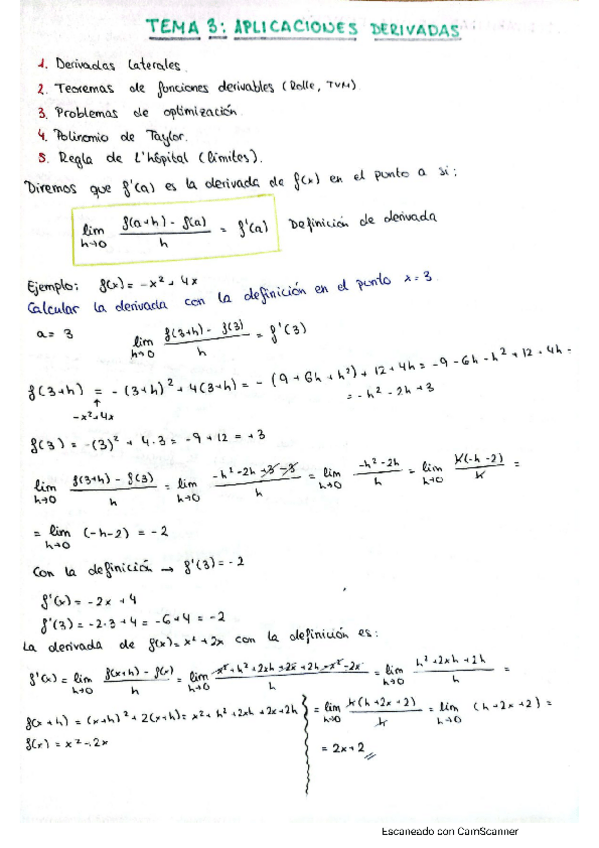 TEMA 3: APLICACIONES DERIVADAS
1. Derivadas laterales.
2. Teoremas de funciones derivables (Rolle, TVM)
3. Problemas de optimización
4. Polinomio de Taylor.
5. Regla de L'hôpital (límites).
Diremos que f'(a) es la derivada de f(x) en el punto a si:
lim h→0 f(a+h) - f(a) / h = f'(a) Definición de derivada
Ejemplo: f(x) = -x² + 4x
Calcular la derivada con la definición en el punto x=3
a = 3 lim h→0 f(3+h) - f(3) / h = f'(3)
f(3+h) = -(3+h)² + 4(3+h) = -(9+6h+h²) + 12 + 4h = -9 - 6h - h² + 12 + 4h =
↑ = -h² - 2h + 3
-x²+4x
f(3) = -(3)² + 4·3 = -9 + 12 = +3
lim h→0 f(3+h) - f(3) / h = lim h→0 -h² - 2h + 3 - 3 / h = lim h→0 -h² - 2h / h = lim h→0 h(-h-2) / h =
= lim h→0 (-h-2) = -2
Con la definición → f'(3) = -2
f'(x) = -2x + 4
f'(3) = -2·3 + 4 = -6 + 4 = -2
La derivada de f(x) = x² + 2x con la definición es:
f'(x) = lim h→0 f(x+h) - f(x) / h = lim h→0 x² + h² + 2xh + 2x + 2h - x² - 2x / h = lim h→0 h² + 2xh + 2h / h =
f(x+h) = (x+h)² + 2(x+h) = x² + h² + 2xh + 2x + 2h
f(x) = x² + 2x
= lim h→0 h(h+2x+2) / h = lim h→0 (h+2x+2) =
= 2x+2
Escaneado con CamScanner